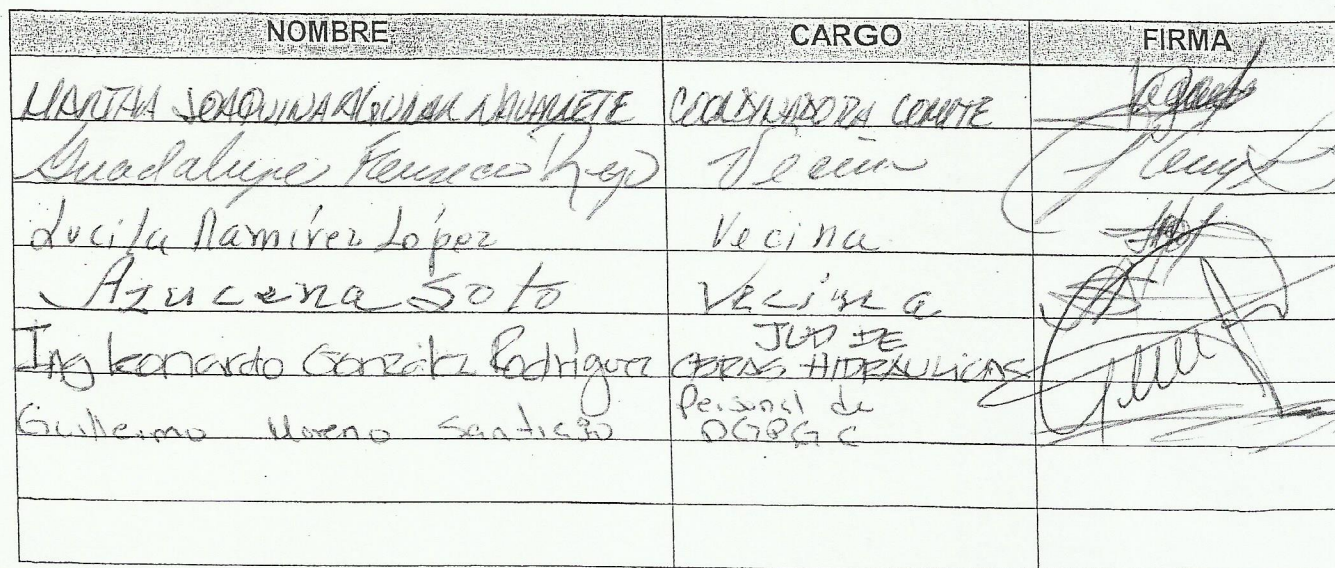 NOMBRE CARGO FIRMA
MARTHA JOAQUINA AGUILAR NAVARRETE COORDINADORA COMITE
Guadalupe Vecina
Lucila Ramírez López Vecina
Azucena Soto Vecina
Ing Leonardo González Rodríguez JUD DE OBRAS HIDRAULICAS
Guillermo Moreno Santiago Personal de DGPGC